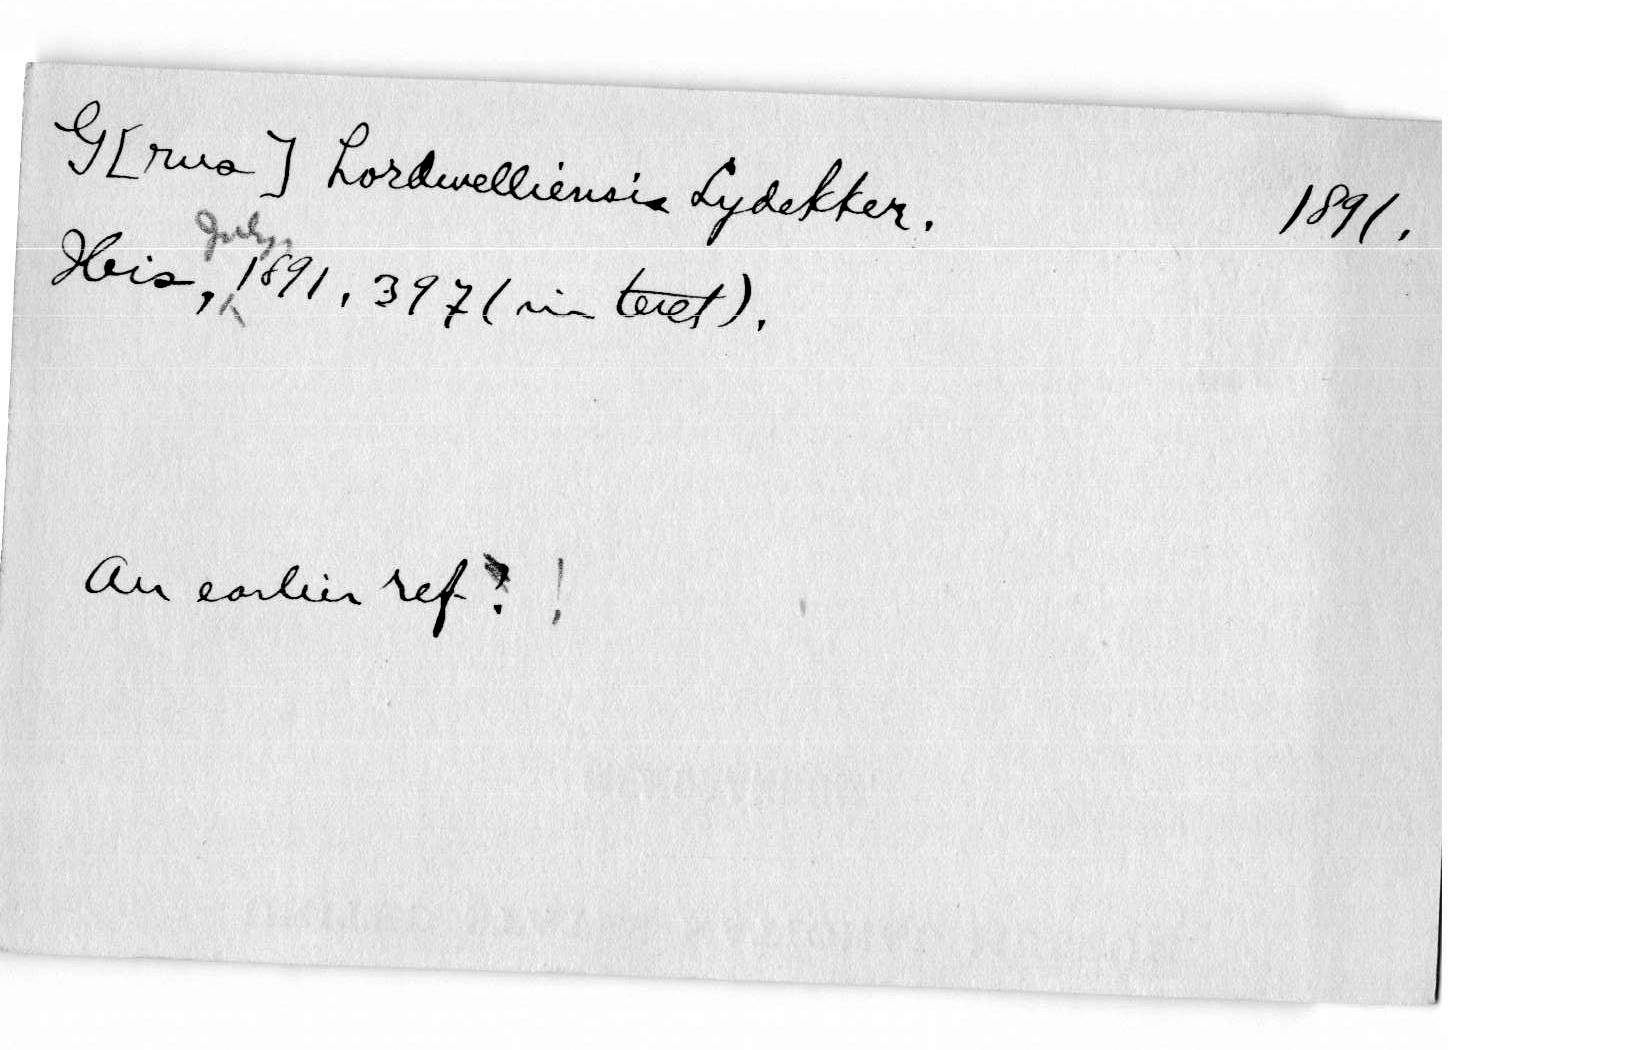 G[rus] hordwelliensis Lydekker. 1891.
Ibis, July, 1891, 397 (in text).
An earlier ref? !